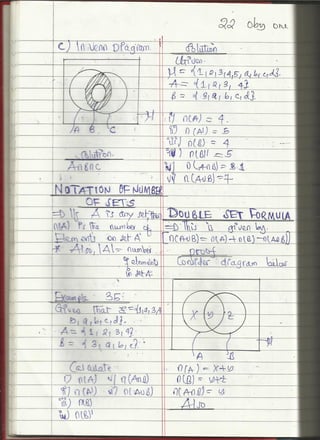 22
c) In Venn Diagram
A B C
μ
Solution
A∩B∩C
NOTATION OF NUMBER
OF SETS
=D If A is any set then
n(A) is the number of
Elements on set A
* Also, |A| = number
of elements
in set A
Example 35:
Given that = {1, 2, 3, 4
5, a, b, c, d}
A = {1, 2, 3, 4}
B = {3, a, b, c}
Calculate
i) n(A) v) n(A∩B)
ii) n(A') vi) n(A∪B)
iii) n(B)
iv) n(B)'
Solution
Given
μ = {1, 2, 3, 4, 5, a, b, c, d}
A = {1, 2, 3, 4}
B = {3, a, b, c, d}
i) n(A) = 4
ii) n(A') = 5
iii) n(B) = 4
iv) n(B)' = 5
v) n(A∩B) = 1
vi) n(A∪B) = 7
DOUBLE SET FORMULA
=D This is given by
n(A∪B) = n(A) + n(B) - n(A∩B)
proof
Consider diagram below
X y Z
A B
μ
n(A) = x+y
n(B) = y+z
n(A∩B) = y
Also